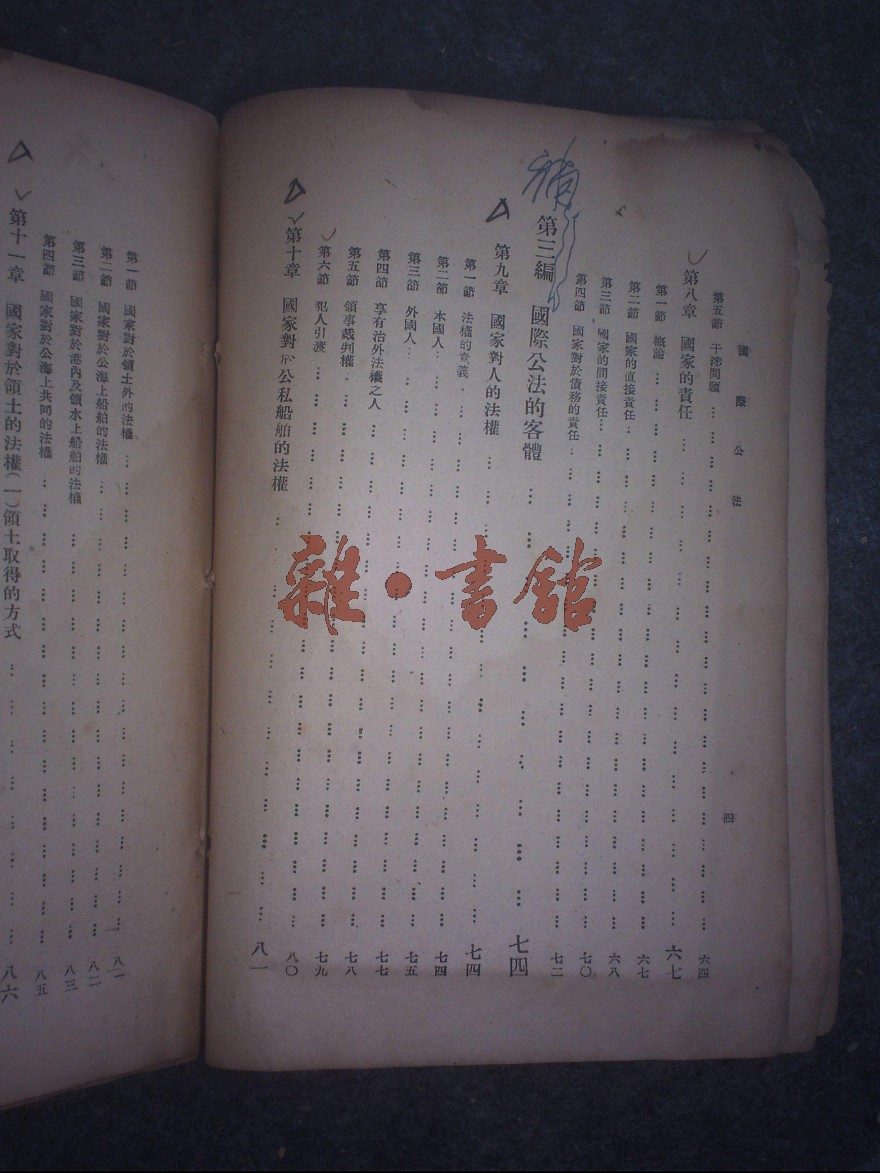 國際公法 四
第五節 干涉問題 …… 六四
第八章 國家的責任 …… 六七
第一節 概論 …… 六七
第二節 國家的直接責任 …… 六八
第三節 國家的間接責任 …… 七〇
第四節 國家對於債務的責任 …… 七二
第三編 國際公法的客體 …… 七四
第九章 國家對人的法權 …… 七四
第一節 法權的意義 …… 七四
第二節 本國人 …… 七五
第三節 外國人 …… 七七
第四節 享有治外法權之人 …… 七八
第五節 領事裁判權 …… 七九
第六節 犯人引渡 …… 八〇
第十章 國家對於公私船舶的法權 …… 八一
第一節 國家對於領土外的法權 …… 八一
第二節 國家對於公海上船舶的法權 …… 八二
第三節 國家對於港內及領水上船舶的法權 …… 八三
第四節 國家對於公海上共同的法權 …… 八五
第十一章 國家對於領土的法權(一)領土取得的方式 …… 八六
雜·書館